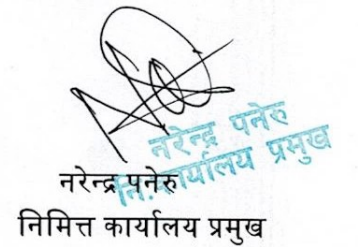 नरेन्द्र पनेरु
नि. कार्यालय प्रमुख
नरेन्द्र पनेरु
निमित्त कार्यालय प्रमुख